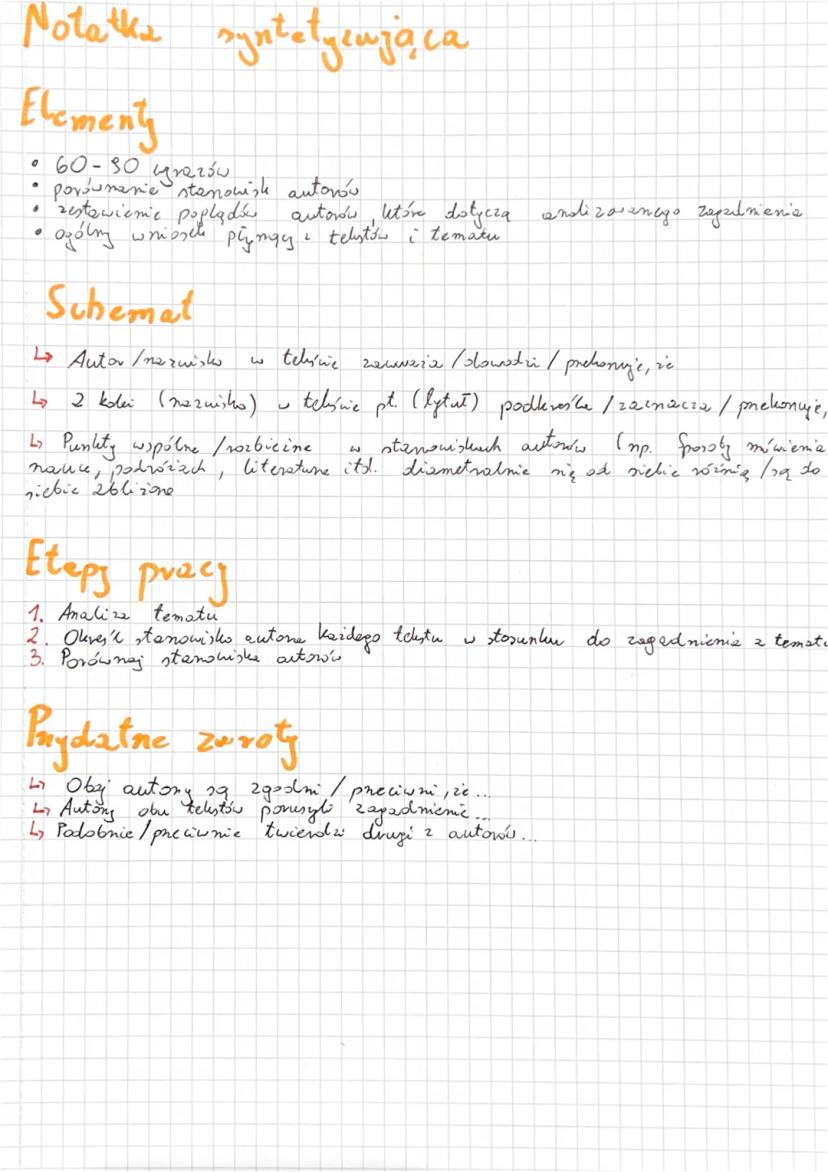 Notatka syntetyzująca
Elementy
• 60-90 wyrazów
• porównanie stanowisk autorów
• zestawienie poglądów autorów, które dotyczą analizowanego zagadnienia
• ogólny wniosek płynący z tekstów i tematu
Schemat
↳ Autor/nazwisko w tekście zauważa/dowodzi/przekonuje, że
↳ Z kolei (nazwisko) w tekście pt. (tytuł) podkreśla/zaznacza/przekonuje,
↳ Punkty wspólne/rozbieżne w stanowiskach autorów (np. sposoby mówienia
nauce, podróżach, literaturze itd. diametralnie się od siebie różnią/są do
siebie zbliżone
Etapy pracy
1. Analiza tematu
2. Określ stanowisko autora każdego tekstu w stosunku do zagadnienia z tematu
3. Porównaj stanowiska autorów
Przydatne zwroty
↳ Obaj autorzy są zgodni/przeciwni, że...
↳ Autorzy obu tekstów poruszyli zagadnienie...
↳ Podobnie/przeciwnie twierdzi drugi z autorów...